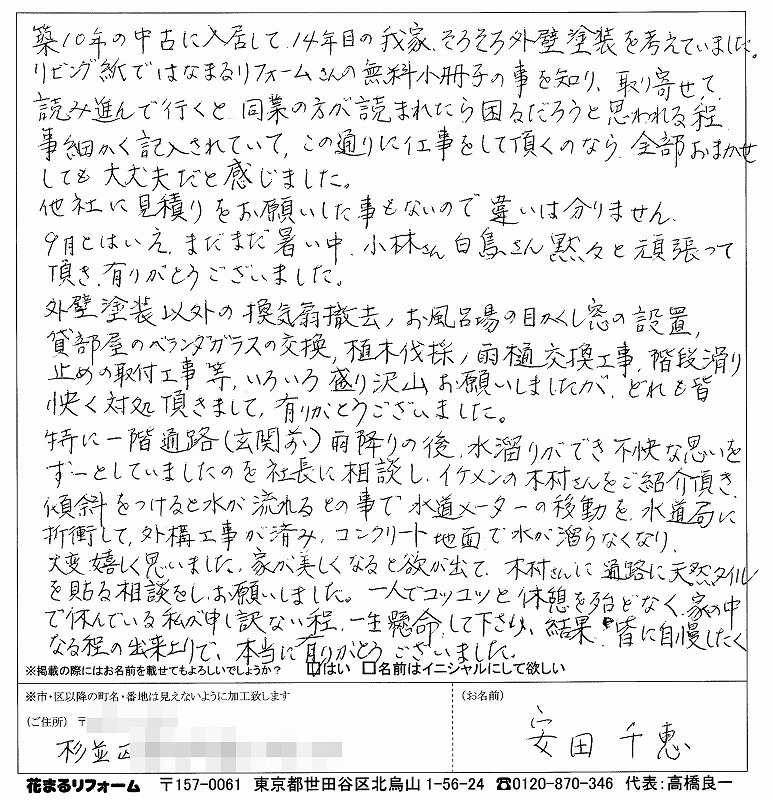 築10年の中古に入居して、14年目の我家、そろそろ外壁塗装を考えていました。
リビング紙ではなまるリフォームさんの無料小冊子の事を知り、取り寄せて
読み進んで行くと、同業の方が読まれたら困るだろうと思われる程
事細かく記入されていて、この通りに仕事をして頂くのなら、全部おまかせ
しても大丈夫だと感じました。
他社に見積りをお願いした事もないので違いは分りません。
9月とはいえ、まだまだ暑い中、小林さん白鳥さん黙々と頑張って
頂き、有りがとうございました。
外壁塗装以外の換気扇撤去、お風呂場の目かくし窓の設置、
貸部屋のベランダガラスの交換、植木伐採、雨樋交換工事、階段滑り
止めの取付工事等、いろいろ盛り沢山お願いしましたが、どれも皆
快く対処頂きまして、有りがとうございました。
特に一階通路(玄関前)雨降りの後、水溜りができ不快な思いを
ずーとしていましたのを社長に相談し、イケメンの木村さんをご紹介頂き、
傾斜をつけると水が流れるとの事で水道メーターの移動を、水道局に
折衝して、外構工事が済み、コンクリート地面で水が溜らなくなり、
大変嬉しく思いました。家が美しくなると欲が出て、木村さんに通路に天然タイル
を貼る相談をし、お願いしました。一人でコツコツと休憩を殆どなく、家の中
で休んでいる私が申し訳ない程、一生懸命して下さり、結果、皆に自慢したく
なる程の出来上りで、本当に有りがとうございました。
※掲載の際にはお名前を載せてもよろしいでしょうか? □はい □名前はイニシャルにして欲しい
※市・区以降の町名・番地は見えないように加工致します
(ご住所) 〒
杉並区
(お名前)
安田 千恵
花まるリフォーム 〒157-0061 東京都世田谷区北烏山1-56-24 ☎0120-870-346 代表:高橋良一